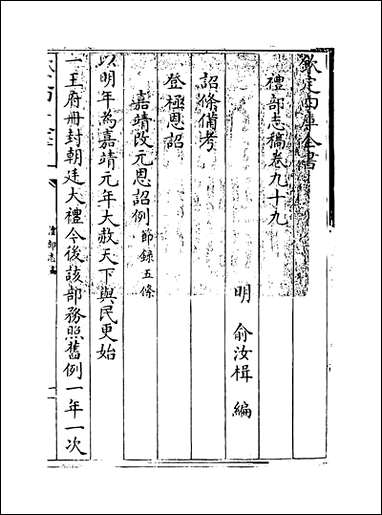 欽定四庫全書
禮部志稿卷九十九
明 俞汝楫 編
詔條備考
登極恩詔
嘉靖改元恩詔例節錄五條
以明年為嘉靖元年大赦天下與民更始
一王府冊封朝廷大禮今後該部務照舊例一年一次
禮部志稿